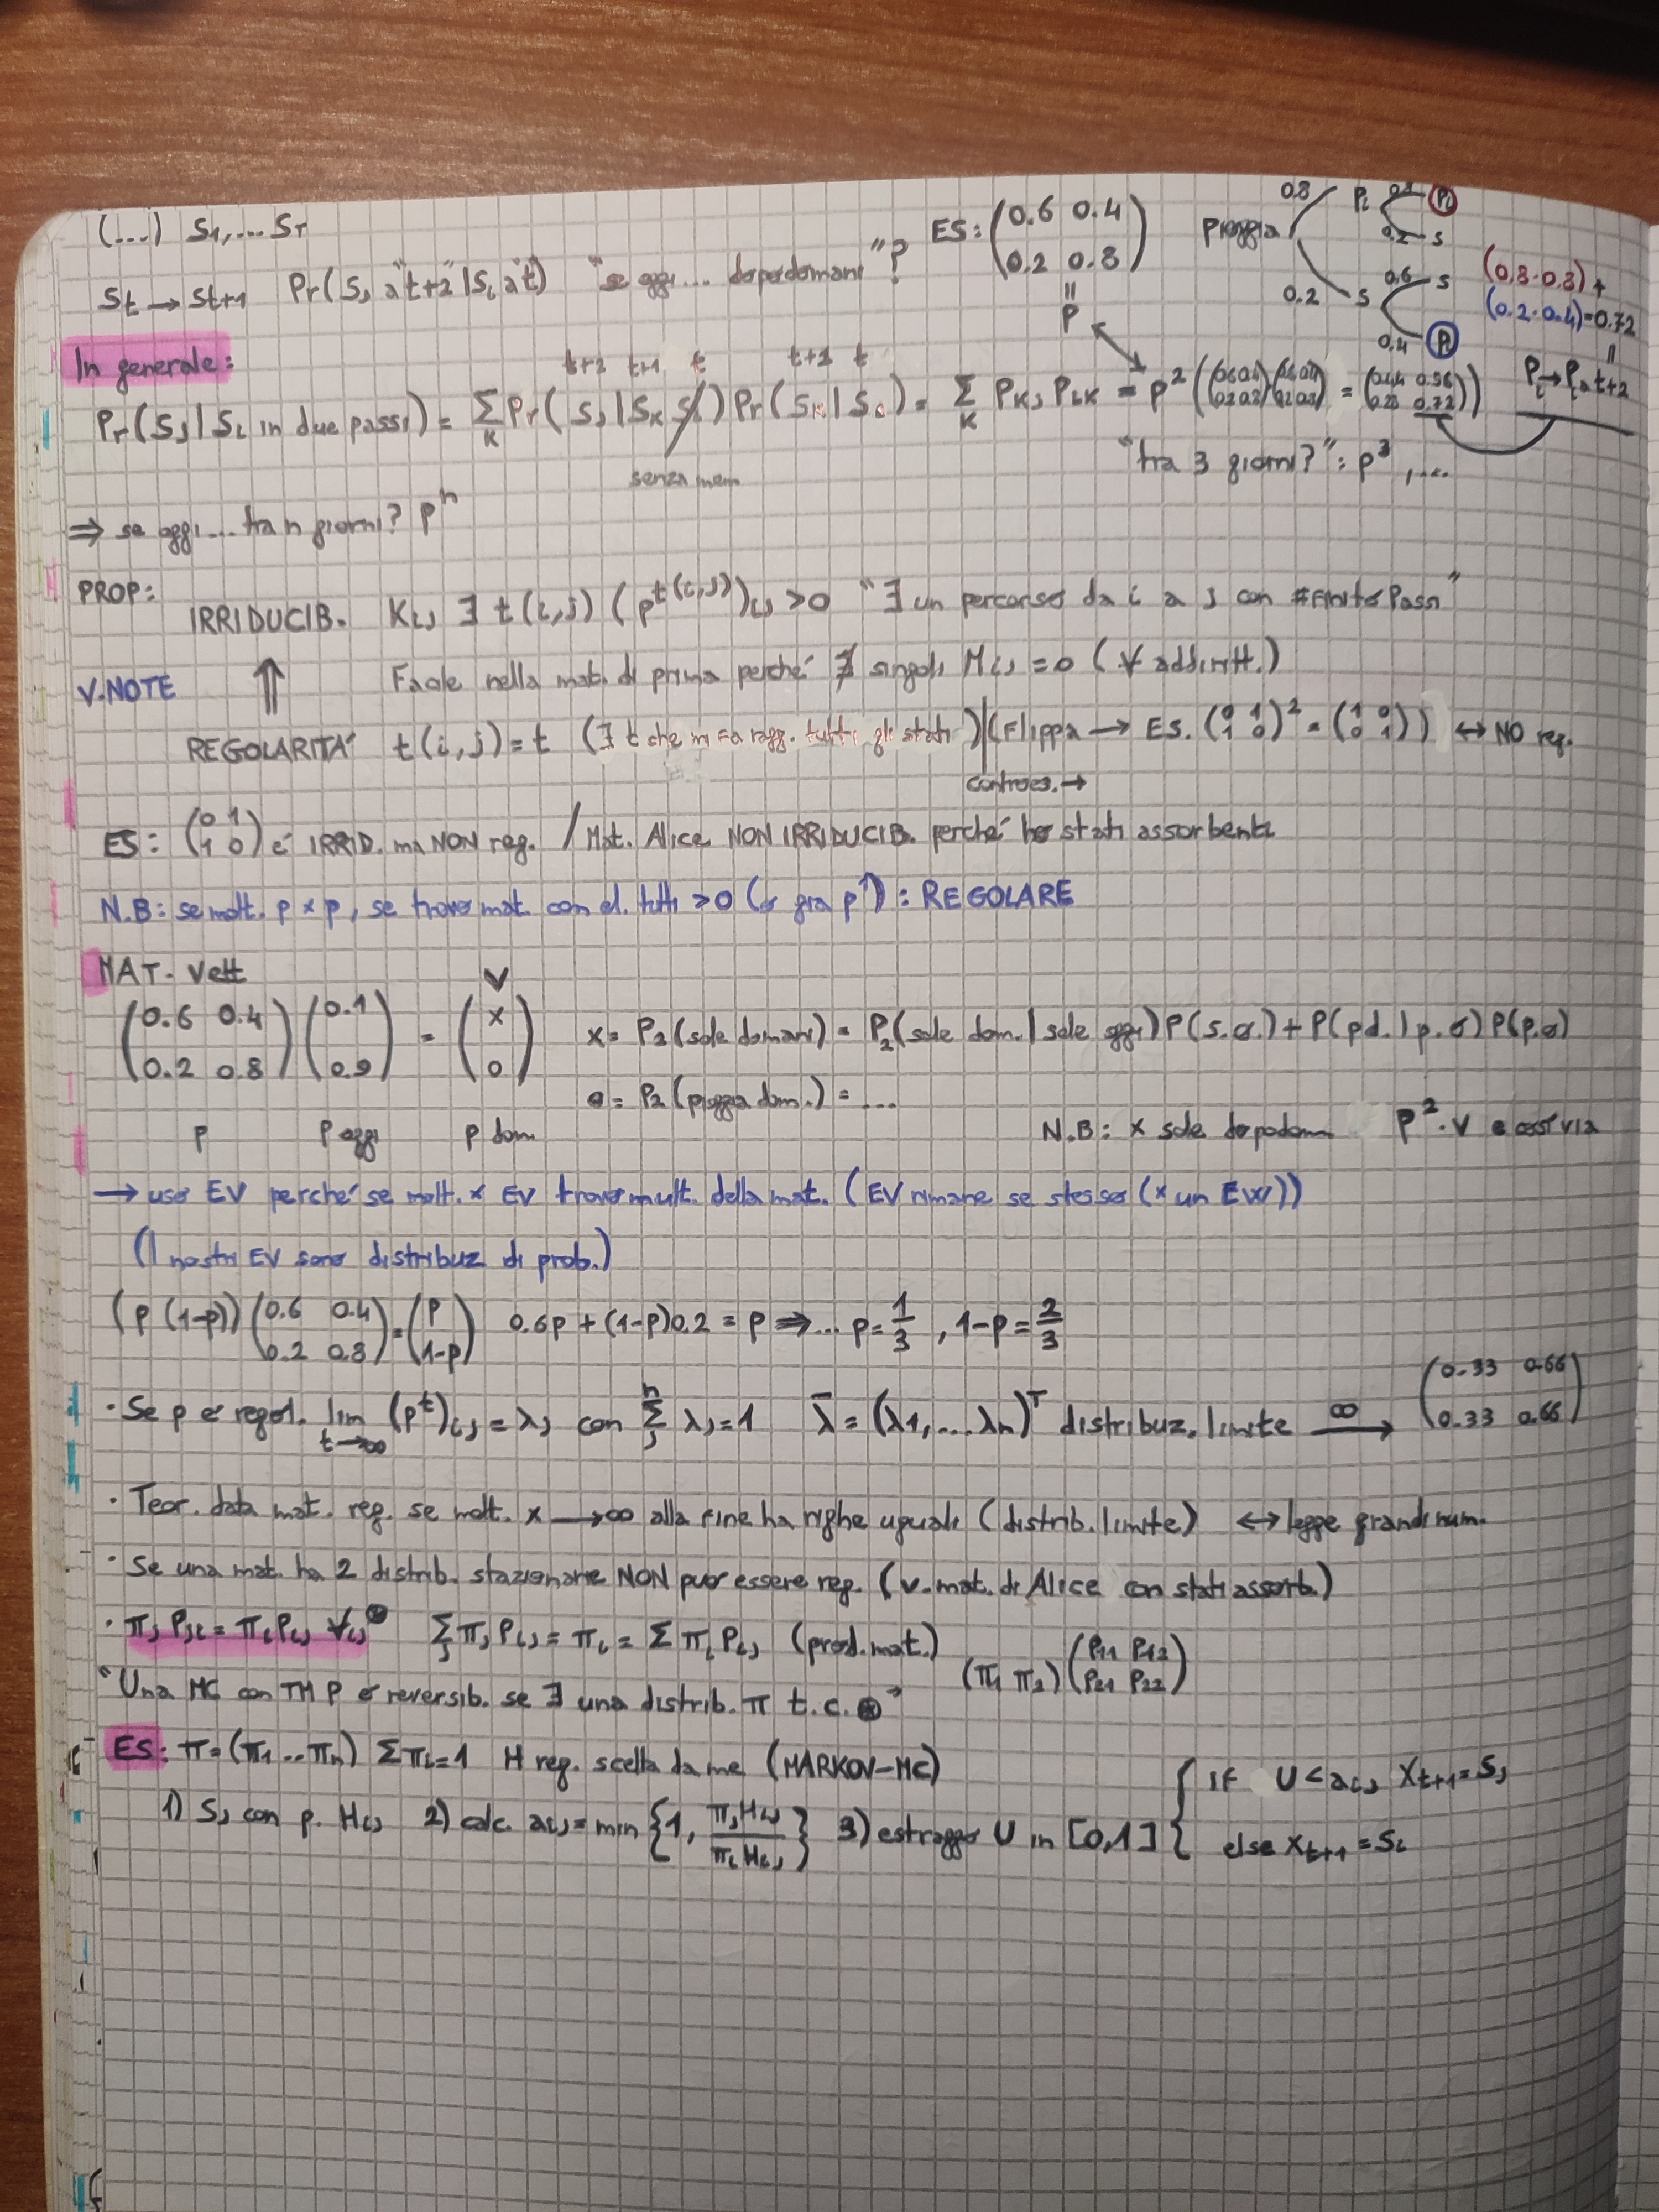 (...) S1,... ST
St → St+1 Pr(SJ a "t+2" | Si a "t") "se oggi... dopodomani"? ES: (0.6 0.4
0.2 0.8) = P
Pioggia 0.8 Pi 0.8 Pi
0.2 S
0.2 S 0.6 S
0.4 Pi
(0.8·0.8)+
(0.2·0.4)=0.72
=
Pi→Pi a t+2
In generale:
t+2 t+1 t t+1 t
Pr(SJ | Si in due passi) = Σ_K Pr(SJ | SK Si) Pr(SK | Si) = Σ_K PKJ PiK = P² ((0.6 0.4
0.2 0.8)(0.6 0.4
0.2 0.8) = (0.44 0.56
0.28 0.72))
senza mem
"tra 3 giorni?": P³, ....
⇒ se oggi... tra n giorni? P^n
PROP:
IRRIDUCIB. KiJ ∃ t(i,j) (P^t(i,J))iJ >0 "∃ un percorso da i a J con #Finito Passi"
V.NOTE ⇑ Facile nella mat. di prima perché ∄ singoli MiJ = 0 (∀ addiritt.)
REGOLARITÀ t(i,j) = t (∃ t che mi fa ragg. tutti gli stati) | (Flippa → ES. (0 1
1 0)² = (1 0
0 1)) ↔ NO reg.
controes. →
ES: (0 1
1 0) è IRRID. ma NON reg. / Mat. Alice NON IRRIDUCIB. perché ho stati assorbenti
N.B: se molt. P x P, se trovo mat. con el. tutti >0 (o già P¹): REGOLARE
MAT. Vett
(0.6 0.4
0.2 0.8) (0.1
0.9) = (x
0) V
x = P2(sole domani) = P2(sole dom. | sole oggi) P(s.o.) + P(pd. | p.o) P(p.o)
0 = P2(pioggia dom.) = ...
P P oggi P dom.
N.B: x sole dopodom P²·V e così via
→ uso EV perché se molt. x EV trovo mult. della mat. (EV rimane se stesso (x un EW))
(I nostri EV sono distribuz di prob.)
(P (1-P)) (0.6 0.4
0.2 0.8) = (P
1-P) 0.6P + (1-P)0.2 = P ⇒... P = 1/3, 1-P = 2/3
· Se P è regol. lim t→∞ (P^t)iJ = λJ con Σ_J^n λJ = 1 λ̄ = (λ1,...λn)^T distribuz. limite ∞→ (0.33 0.66
0.33 0.66)
· Teor. data mat. reg. se molt. x →∞ alla fine ha righe uguali (distrib. limite) ↔ legge grandi num.
· Se una mat. ha 2 distrib. stazionarie NON può essere reg. (v. mat. di Alice con stati assorb.)
· πJ PJi = πi PiJ ∀iJ ⊛ Σ_J πJ PiJ = πi = Σ πi PiJ (prod. mat.) (π1 π2) (P11 P12
P21 P22)
"Una MC con TM P è reversib. se ∃ una distrib. π t.c. ⊛"
ES: π = (π1 .. πn) Σπi = 1 H reg. scelta da me (MARKOV-MC)
1) SJ con p. HiJ 2) calc. aiJ = min {1, πJ HiJ / πi HiJ} 3) estraggo U in [0,1] { if U < aiJ Xt+1 = SJ
else Xt+1 = Si